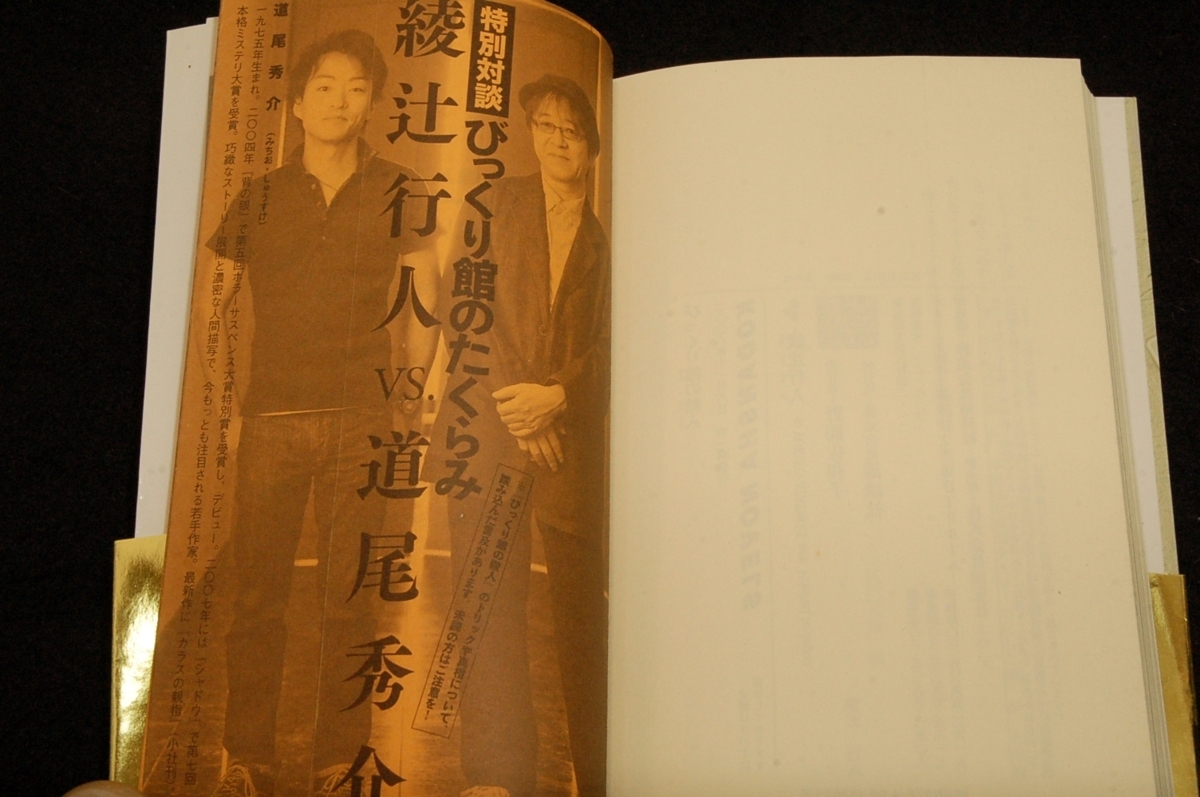 特別対談
びっくり館のたくらみ
綾辻行人
VS.
道尾秀介
※『びっくり館の殺人』のトリックや真相について、
踏み込んだ言及があります。未読の方はご注意を！
道尾秀介(みちお・しゅうすけ)
一九七五年生まれ。二〇〇四年『背の眼』で第五回ホラーサスペンス大賞特別賞を受賞し、デビュー。二〇〇七年には『シャドウ』で第七回
本格ミステリ大賞を受賞。巧緻なストーリー展開と濃密な人間描写で、今もっとも注目される若手作家。最新作に『カラスの親指』(小社刊)。
KODANSHA NOVELS